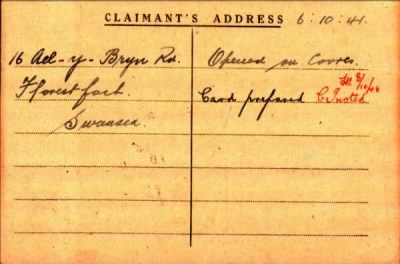 CLAIMANT'S ADDRESS 6.10.41.
16 Ael-y-Bryn Rd.
Fforestfach.
Swansea.
Opened on Corres.
Card prepared & noted
8/10/41